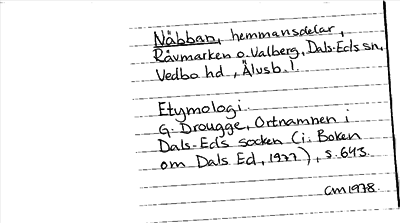 Nåbban, hemmansdelar,
Råvmarken o. Valberg, Dals-Eds sn,
Vedbo hd, Älvsb. l.
Etymologi.
G. Drougge, Ortnamnen i
Dals-Eds socken (i: Boken
om Dals Ed, 1977), s. 643.
CM 1978.